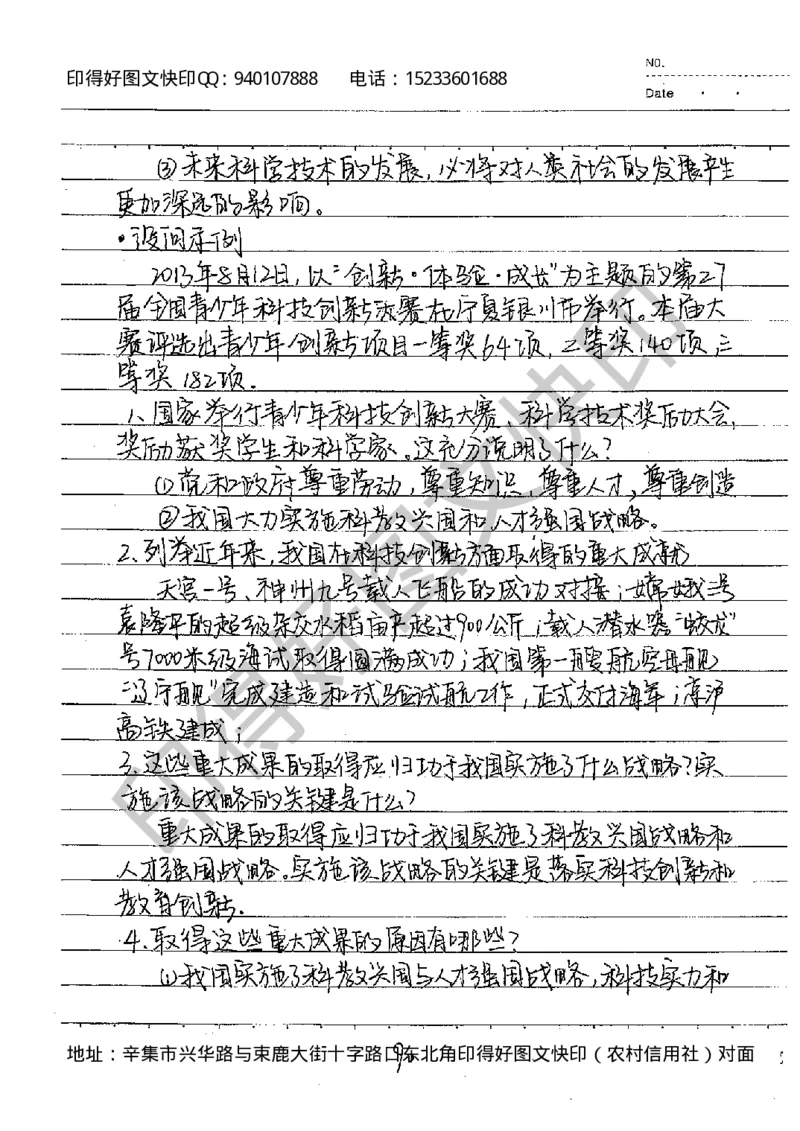 印得好图文快印QQ：940107888 电话：15233601688
NO.
Date
③未来科学技术的发展，必将对人类社会的发展产生
更加深远的影响。
·设问示例
2013年8月12日，以"创新·体验·成长"为主题的第27
届全国青少年科技创新大赛在宁夏银川市举行。本届大
赛评选出青少年创新项目一等奖64项，二等奖140项，三
等奖182项．
1、国家举行青少年科技创新大赛、科学技术奖励大会，
奖励获奖学生和科学家。这充分说明了什么？
①党和政府尊重劳动，尊重知识 尊重人才，尊重创造
②我国大力实施科教兴国和人才强国战略。
2.列举近年来，我国在科技创新方面取得的重大成就
天宫一号、神州九号载人飞船的成功对接；嫦娥三号
袁隆平的超级杂交水稻亩产超过900公斤；载人潜水器"蛟龙"
号7000米级海试取得圆满成功；我国第一艘航空母舰
"辽宁舰"完成建造和试验试航工作，正式交付海军；京沪
高铁建成；
3.这些重大成果的取得应归功于我国实施了什么战略？实
施该战略的关键是什么？
重大成果的取得应归功于我国实施了科教兴国战略和
人才强国战略。实施该战略的关键是落实科技创新和
教育创新．
4.取得这些重大成果的原因有哪些？
①我国实施了科教兴国与人才强国战略，科技实力和
地址：辛集市兴华路与束鹿大街十字路口东北角印得好图文快印（农村信用社）对面
9
印得好图文快印